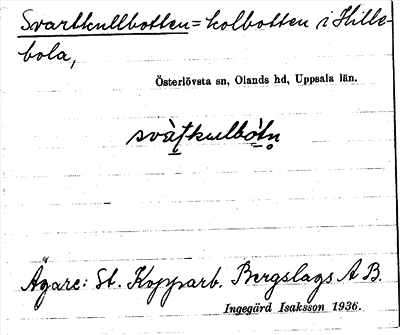 Svartkullbotten = kolbotten i Hille-
bola,
Österlövsta sn, Olands hd, Uppsala län.
svàṭkulbòtn̥
Ägare: St. Kopparb. Bergslags A B.
Ingegärd Isaksson 1936.